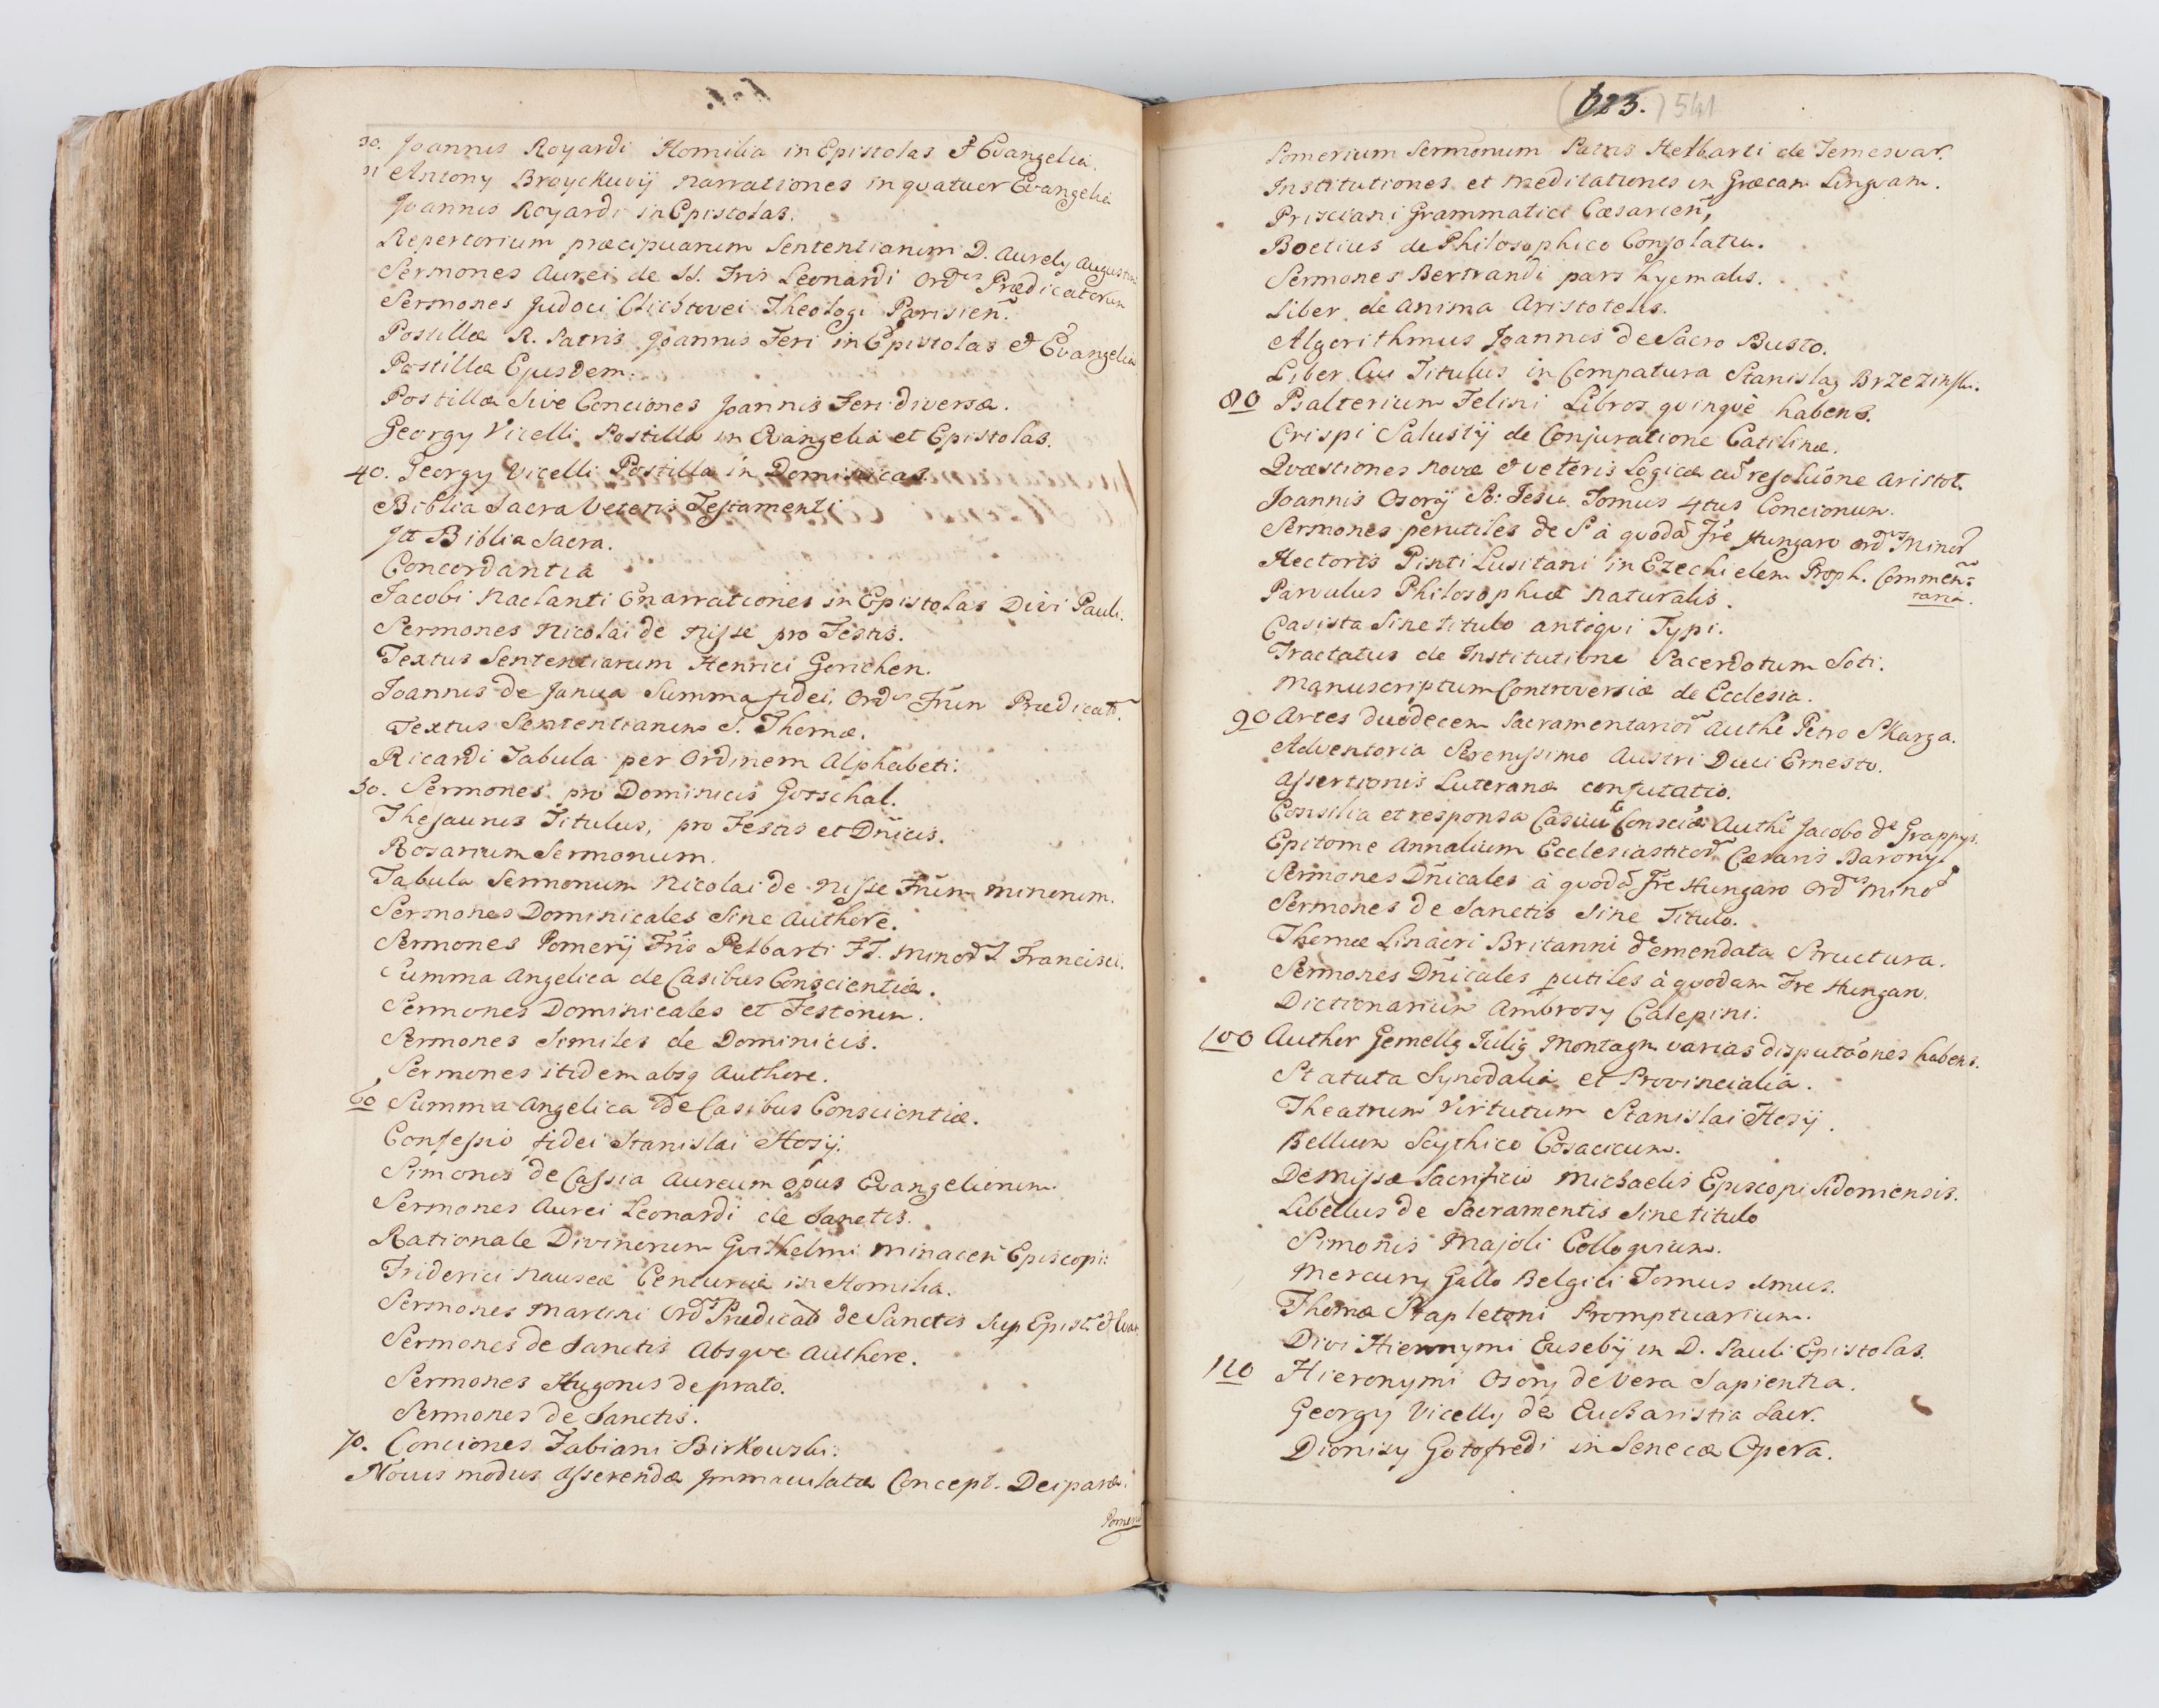 30. Joannis Royardi Homilia in Epistolas & Evangelia.
31 Antony Broyckuvij Narrationes in quatuor Evangelia
Joannis Royardi in Epistolas.
Repertorium præcipuarum Sententiarum D. Aurely Augustini
Sermones Aurei de SS. Fris Leonardi Ordis Prædicatorum
Sermones Judoci Clichtovei Theologi Parisien̄.
Postillæ R. Patris Joannis Feri in Epistolas & Evangelia
Postilla Ejusdem.
Postillæ Sive Conciones Joannis Feri diversæ.
Georgy Vicelli Postilla in Evangelia et Epistolas.
40. Georgy Vicelli Postilla in Dominicas.
Biblia Sacra Veteris Testamenti
Itt Biblia Sacra.
Concordantia
Jacobi Naclanti Enarrationes in Epistolas Divi Pauli.
Sermones Nicolai de Nisse pro Festis.
Textus Sententiarum Henrici Gorichen.
Joannis de Janua Summa fidei, Ordis Frūn Prædicatō.
Textus Sententiarum S. Thomæ.
Ricardi Tabula per Ordinem Alphabeti.
50. Sermones pro Dominicis Gotschal.
Thesaurus Titulus, pro Festis et Dn̄icis.
Rosarium Sermonum.
Tabula Sermonum Nicolai de Nisse Frūm Minorum.
Sermones Dominicales Sine Authore.
Sermones Pomerij Fris Pelbarti FF. Minor S Francisci.
Summa Angelica de Casibus Conscientiæ.
Sermones Dominicales et Festorum.
Sermones Similes de Dominicis.
Sermones itidem absq Authore.
60 Summa Angelica de Casibus Conscientiæ.
Confessio fidei Stanislai Hosij.
Simonis de Cassia Aureum opus Evangeliorum.
Sermones Aurei Leonardi de Sanctis.
Rationale Divinorum Guilhelmi Minacen Episcopi.
Friderici Nauseæ Centuriæ in Homilia.
Sermones Martini Ordis Prædicat de Sanctis Sup Epist. & Evan.
Sermones de Sanctis Absque Authore.
Sermones Hugonis de prato.
Sermones de Sanctis.
70. Conciones Fabiani Birkowski.
Novus modus asserendæ Immaculatæ Concept. Deiparæ.
Pomeri
623. 541
Pomerium Sermonum Patris Helbarti de Temesvar.
Institutiones et Meditationes in Græcam Lingvam.
Prisciani Grammatici Cæsarien̄,
Boetius de Philosophico Consolatu.
Sermones Bertrandi pars hyemalis.
Liber de anima Aristotelis.
Algorithmus Joannis de Sacro Busto.
Liber Cui Titulus in Compatura Stanislaȝ Brzezinski.
80 Psalterium Felini Libros quinquè habens.
Crispi Salustij de Conjuratione Catilinæ.
Quæstiones Novæ & veteris Logicæ ad resoluōne Aristot.
Joannis Osorij So: Jesu Tomus 4tus Concionum.
Sermones perutiles de S à quodā Fre Hungaro Ordis Minor
Hectoris Pinti Lusitani in Ezechielem Proph. Commen=
taria.
Parvulus Philosophiæ Naturalis.
Casista Sine titulo antiqui Typi.
Tractatus de Institutione Sacerdotum Soti.
Manuscriptum Controversiæ de Ecclesia.
90 Artes duodecem Sacramentarior Authe Petro Skarga.
Adventoria Serenissimo Austri Duci Ernesto.
Assertionis Luteranæ confutatio.
Consilia et responsa Casuū Consciæ Authe Jacobo de Grappys.
Epitome Annalium Ecclesiasticor Cæsaris Barony.
Sermones Dn̄icales à quodā Fre Hungaro Ordis Mino
Sermones de Sanctis Sine Titulo.
Thomæ Linacri Britanni de emendata Structura.
Sermones Dn̄icales putiles à quodam Fre Hungaro.
Dictionarium Ambrosy Calepini.
100 Author Gemellȝ Juliȝ Montagn varias disputaōnes habens.
Statuta Synodalia et Provincialia.
Theatrum Virtutum Stanislai Hosij.
Bellum Scythico Cosacicum.
De Missæ Sacrificio Michaelis Episcopi Sidoniensis.
Libellus de Sacramentis Sine titulo
Simonis Majoli Colloquium.
Mercury Gallo Belgici Tomus 1mus.
Thomæ Stapletoni Promptuarium.
Divi Hieronymi Eusebij in D. Pauli Epistolas.
110 Hieronymi Osory de Vera Sapientia.
Georgy Vicelly de Eucharistia Sacr.
Dionisy Gotofredi in Senecæ Opera.